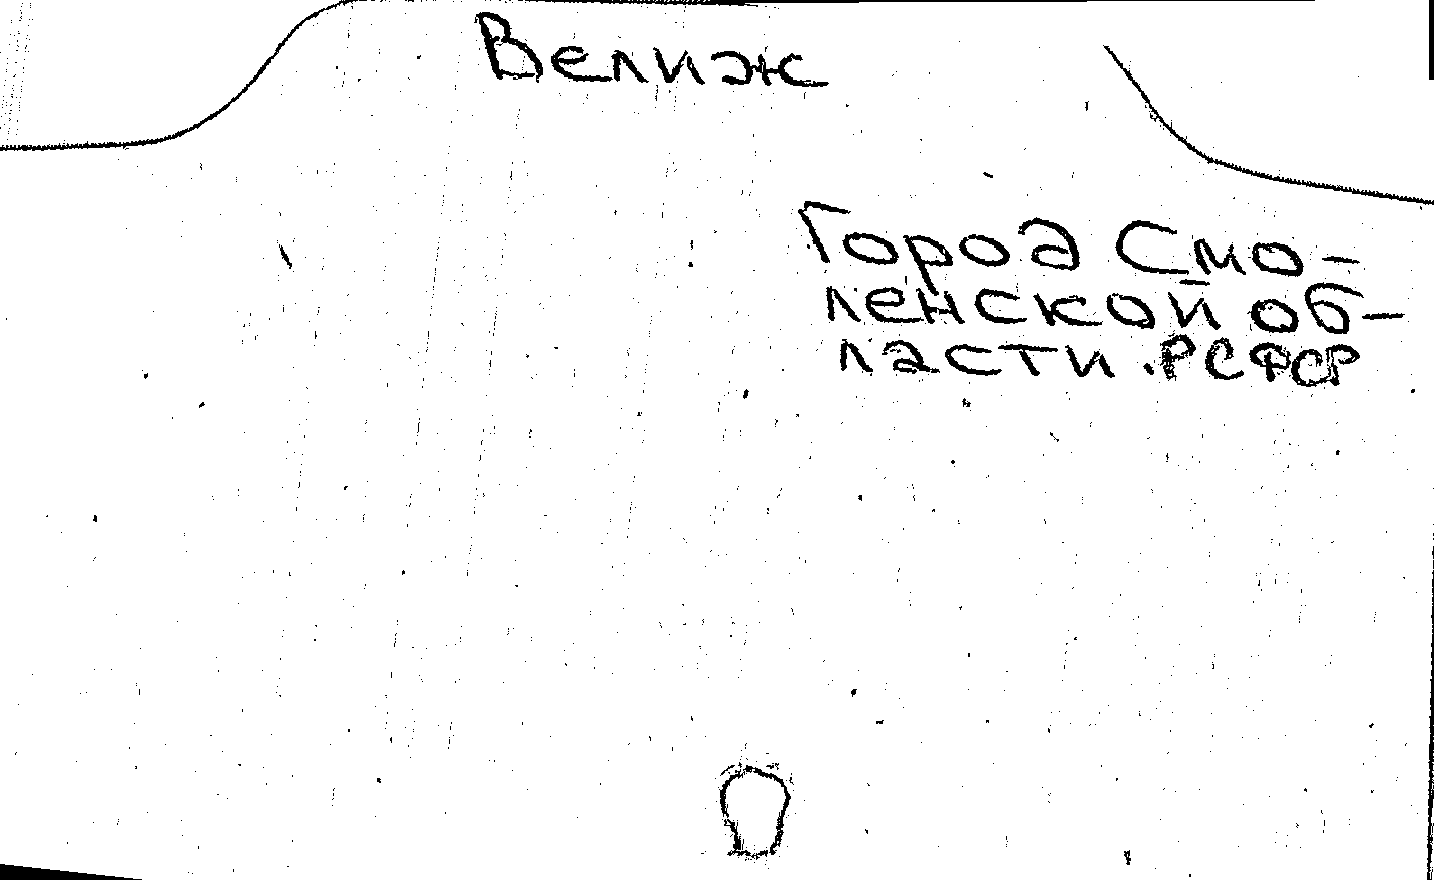 Велиж
Город Смо-
ленской об-
ласти.РСФСР